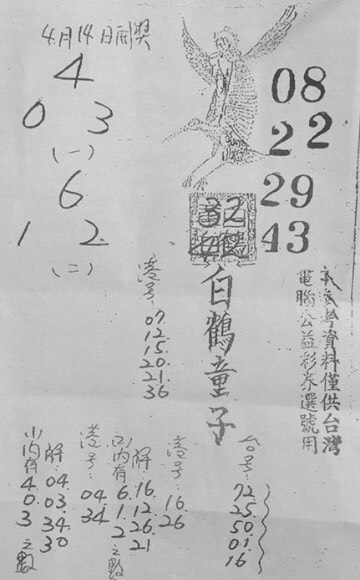 4月14日開獎
4
0 3
(一)
6
1 2
(二)
08
22
29
43
白鶴童子
本參考資料僅供台灣
電腦公益彩券選號用
港号:
07
12
15
20
21
36
台号:
72
25
50
01
16
港号:
16
26
解:
16
12
26
21
(二)內有
6
1
2
之數
港号:
04
34
解:
04
03
34
30
(一)內有
4
0
3
之數